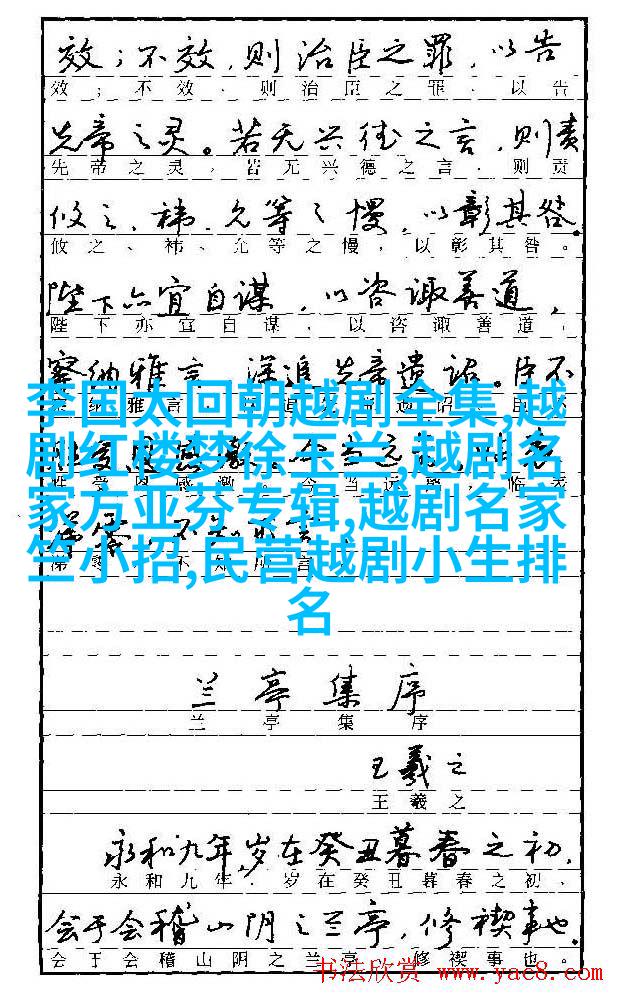 效；不效，则治臣之罪，以告
效；不效、则治臣之罪、以告
先帝之灵。若无兴德之言，则责
先帝之灵，若无兴德之言、则责
攸之、祎、允等之慢，以彰其咎。
攸之、祎、允等之慢，以彰其咎。
陛下亦宜自谋，以咨诹善道，
陛下亦宜自谋，以咨诹善道，
察纳雅言，深追先帝遗诏。臣不
李国太回朝越剧全集,越
剧红楼梦徐玉兰,越剧名
家方亚芬专辑,越剧名家
竺小招,民营越剧小生排
名
兰亭集序
兰亭集序
王羲之
王羲之
永和九年，岁在癸丑暮春之初，
永和九年，岁在癸丑暮春之初、
会于会稽山阴之兰亭，修禊事也。
会于会稽山阴之兰亭，修禊事也。
书法欣赏 www.yac8.com